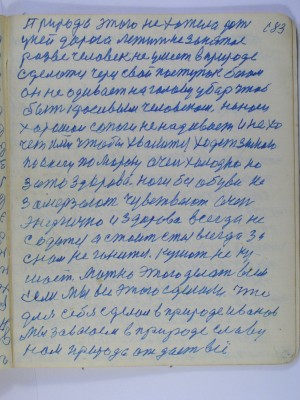 Природа этого не хотела вот 183
у ней дорога лежит не занятая
разве человек не умеет в природе
сделаться через свой поступок Богом
он не одивает на голову убар чтоб
быть красивым человеком на ноги
хорошой сапоги не надивает и не хо
чет ими чтобы хвалиться ходит зимою
по снегу по морозу очень холодно но
зато здорово. ноги без обуви не
замерзают чувствуют очень
энергично и здорово всегда не
сидит а стоит стоя всегда за
сном не гонится. кушать не ку
шает. Мужно этого делает всем
если мы все этого сделаем что
для себя сделал в природе иванов
мы завоюем в природе славу
нам природа отдаст всё